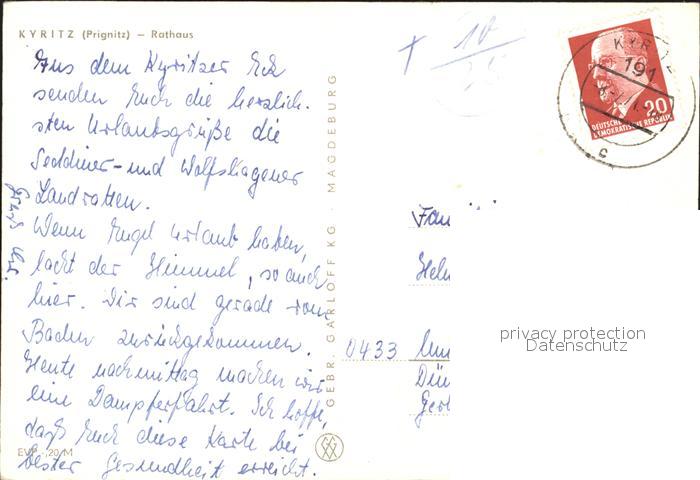 KYRITZ (Prignitz) – Rathaus
Aus dem Kyritzer Eck
senden Euch die herzlich-
sten Urlaubsgrüße die
Seddiner- und Wolfshagener
Landratten.
Wenn Engel Urlaub haben,
lacht der Himmel, so auch
hier. Wir sind gerade vom
Baden zurückgekommen.
Heute nachmittag machen wir
eine Dampferfahrt. Ich hoffe,
daß Euch diese Karte bei
bester Gesundheit erreicht.
EVP -,20 M
Gruß
GEBR. GARLOFF KG · MAGDEBURG
10
KYRITZ
191
c
20
DEUTSCHE
DEMOKRATISCHE REPUBLIK
Fam
0433
privacy protection
Datenschutz